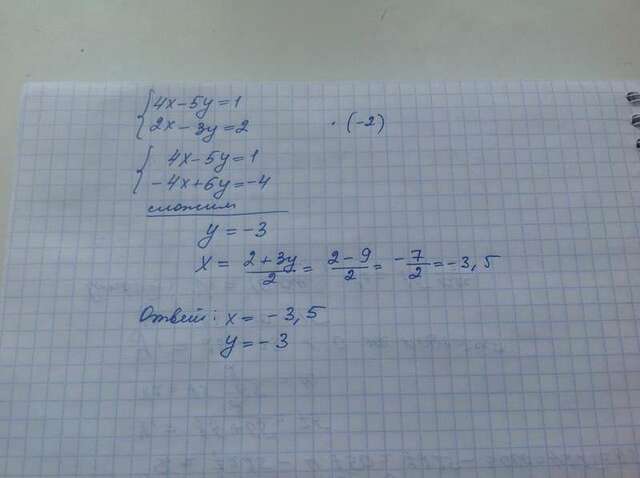 4x-5y=1
2x-3y=2 · (-2)
4x-5y=1
-4x+6y=-4
сложим
y=-3
x = (2+3y)/2 = (2-9)/2 = -7/2 = -3,5
Ответ: x = -3,5
y = -3